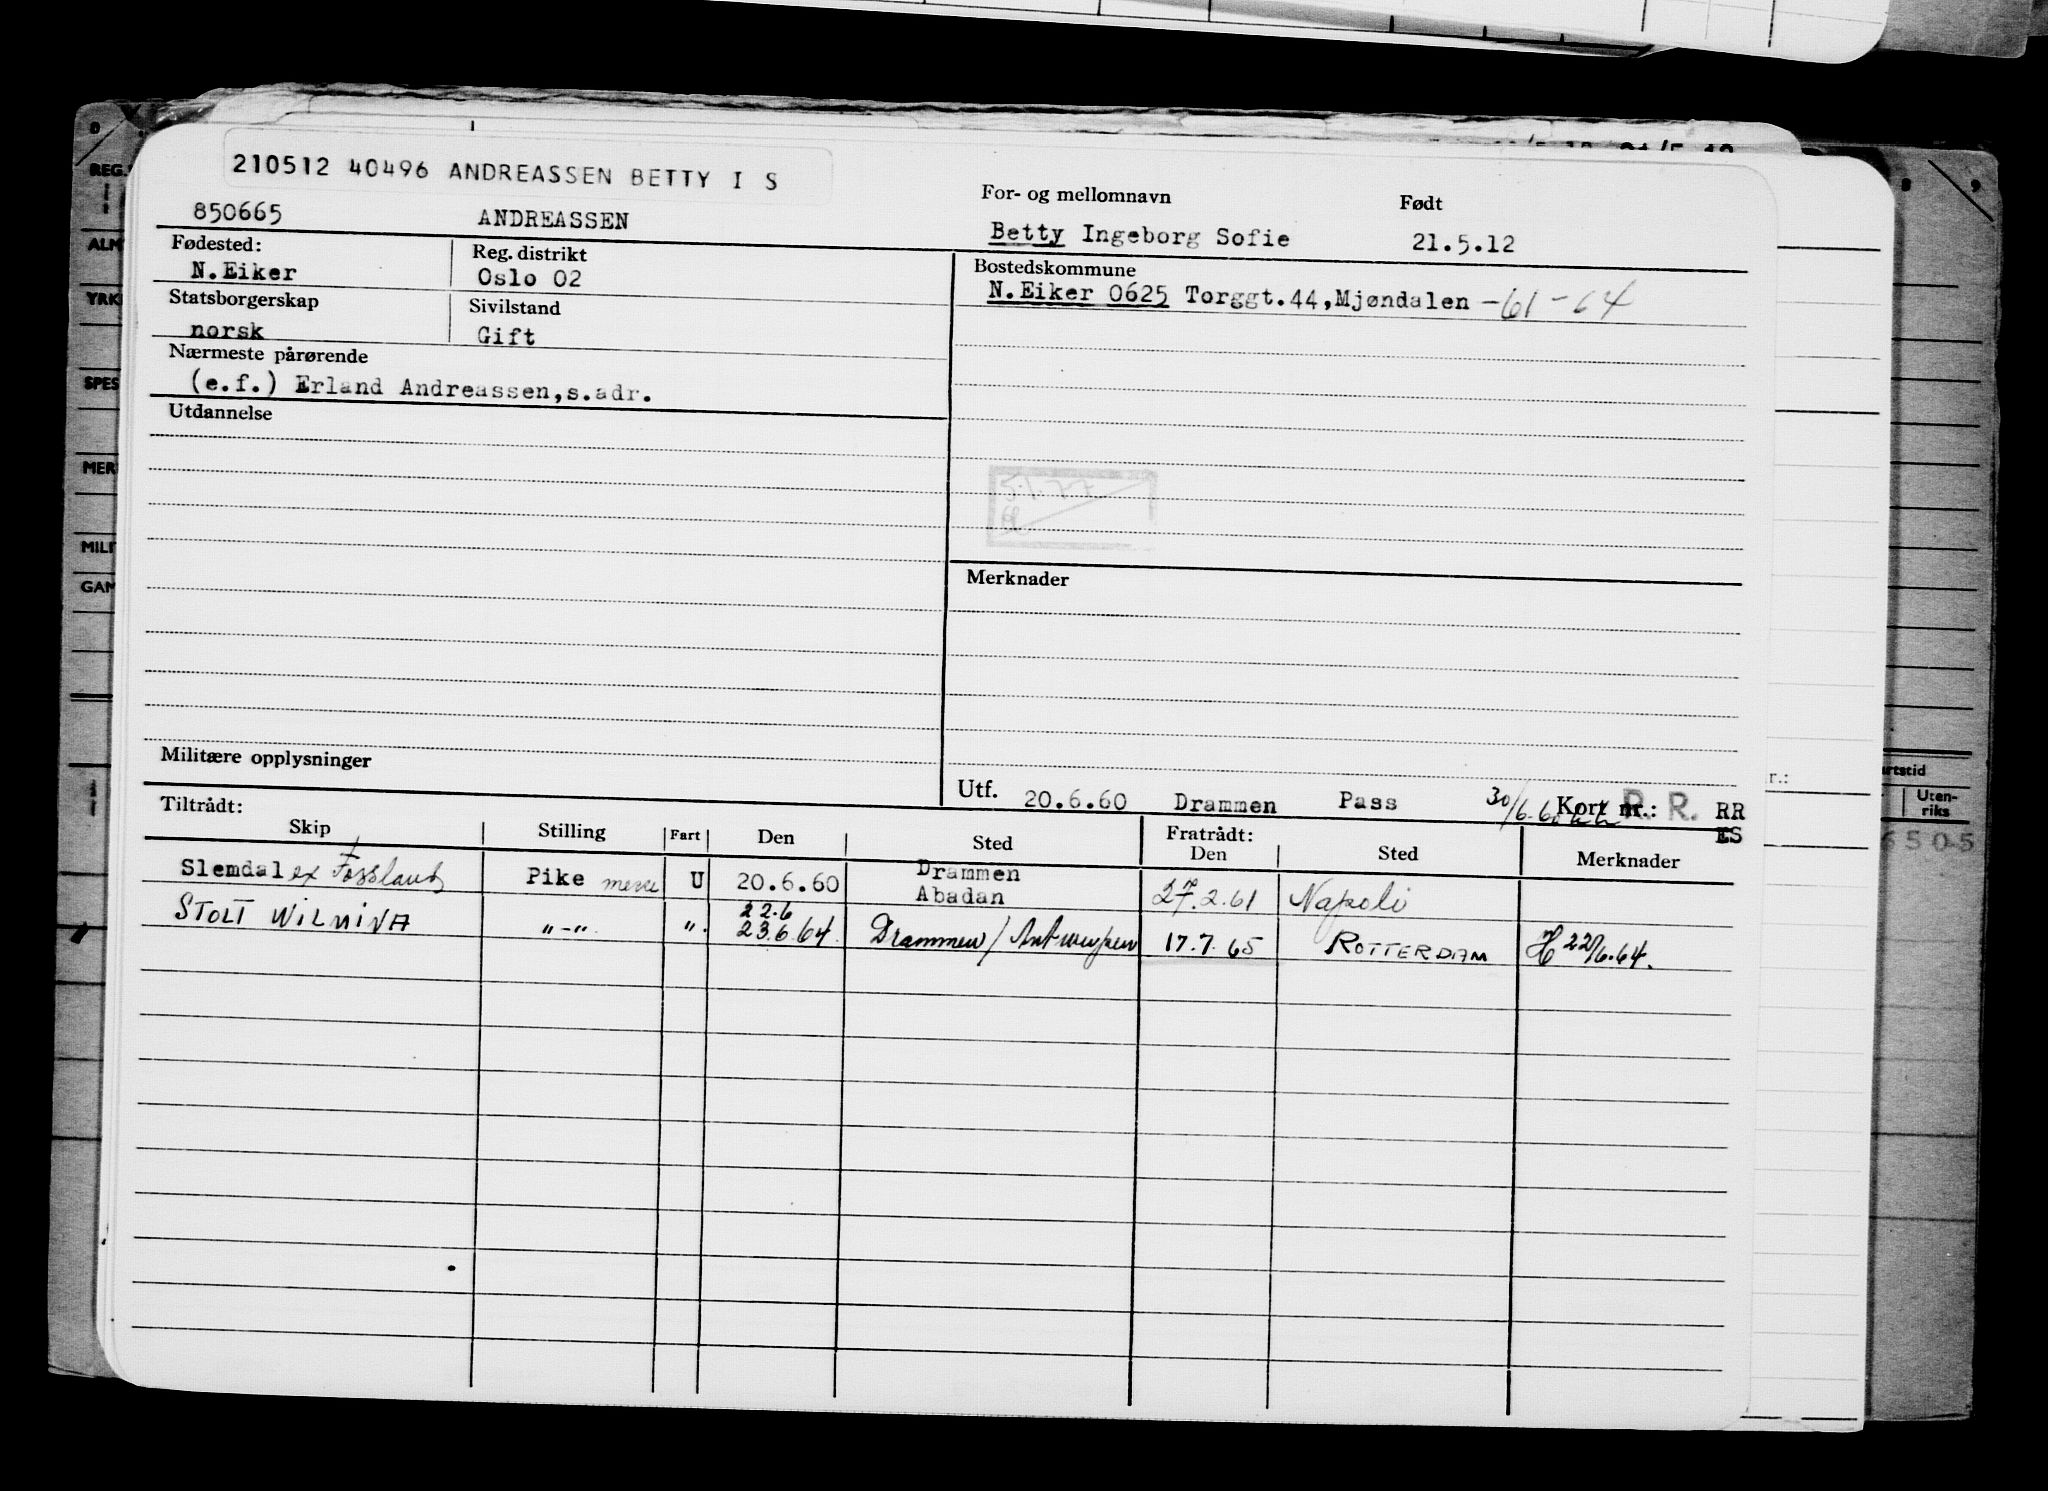 210512 40496 ANDREASSEN BETTY I S
850665 ANDREASSEN
For- og mellomnavn Født
Betty Ingeborg Sofie 21.5.12
Fødested: Reg. distrikt
N.Eiker Oslo 02
Bostedskommune
N.Eiker 0625 Torggt.44, Mjøndalen -61-64
Statsborgerskap Sivilstand
norsk Gift
Nærmeste pårørende
(e.f.) Erland Andreassen,s.adr.
Utdannelse
Merknader
Militære opplysninger
Utf. 20.6.60 Drammen Pass 30/6.60 Kort nr.: R. R. RR
ES
Tiltrådt: Fratrådt:
Skip Stilling Fart Den Sted Den Sted Merknader
Slemdal ex Fossland Pike U 20.6.60 Drammen
Abadan 27.2.61 Napoli
STOLT WILMINA "-" ". 22.6
23.6.64 Drammen/Antwerpen 17.7.65 ROTTERDAM H 22/6.64.
REG.
ALM
YRK
SPES
MER
MILI
GAM
8 9
r.:
artstid
Uten-
riks
6505